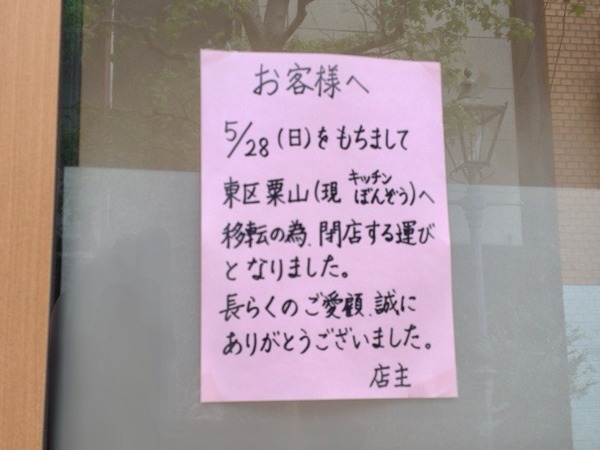 お客様へ
5/28(日)をもちまして
東区粟山(現 キッチンぼんぞう)へ
移転の為、閉店する運び
となりました。
長らくのご愛顧、誠に
ありがとうございました。
店主